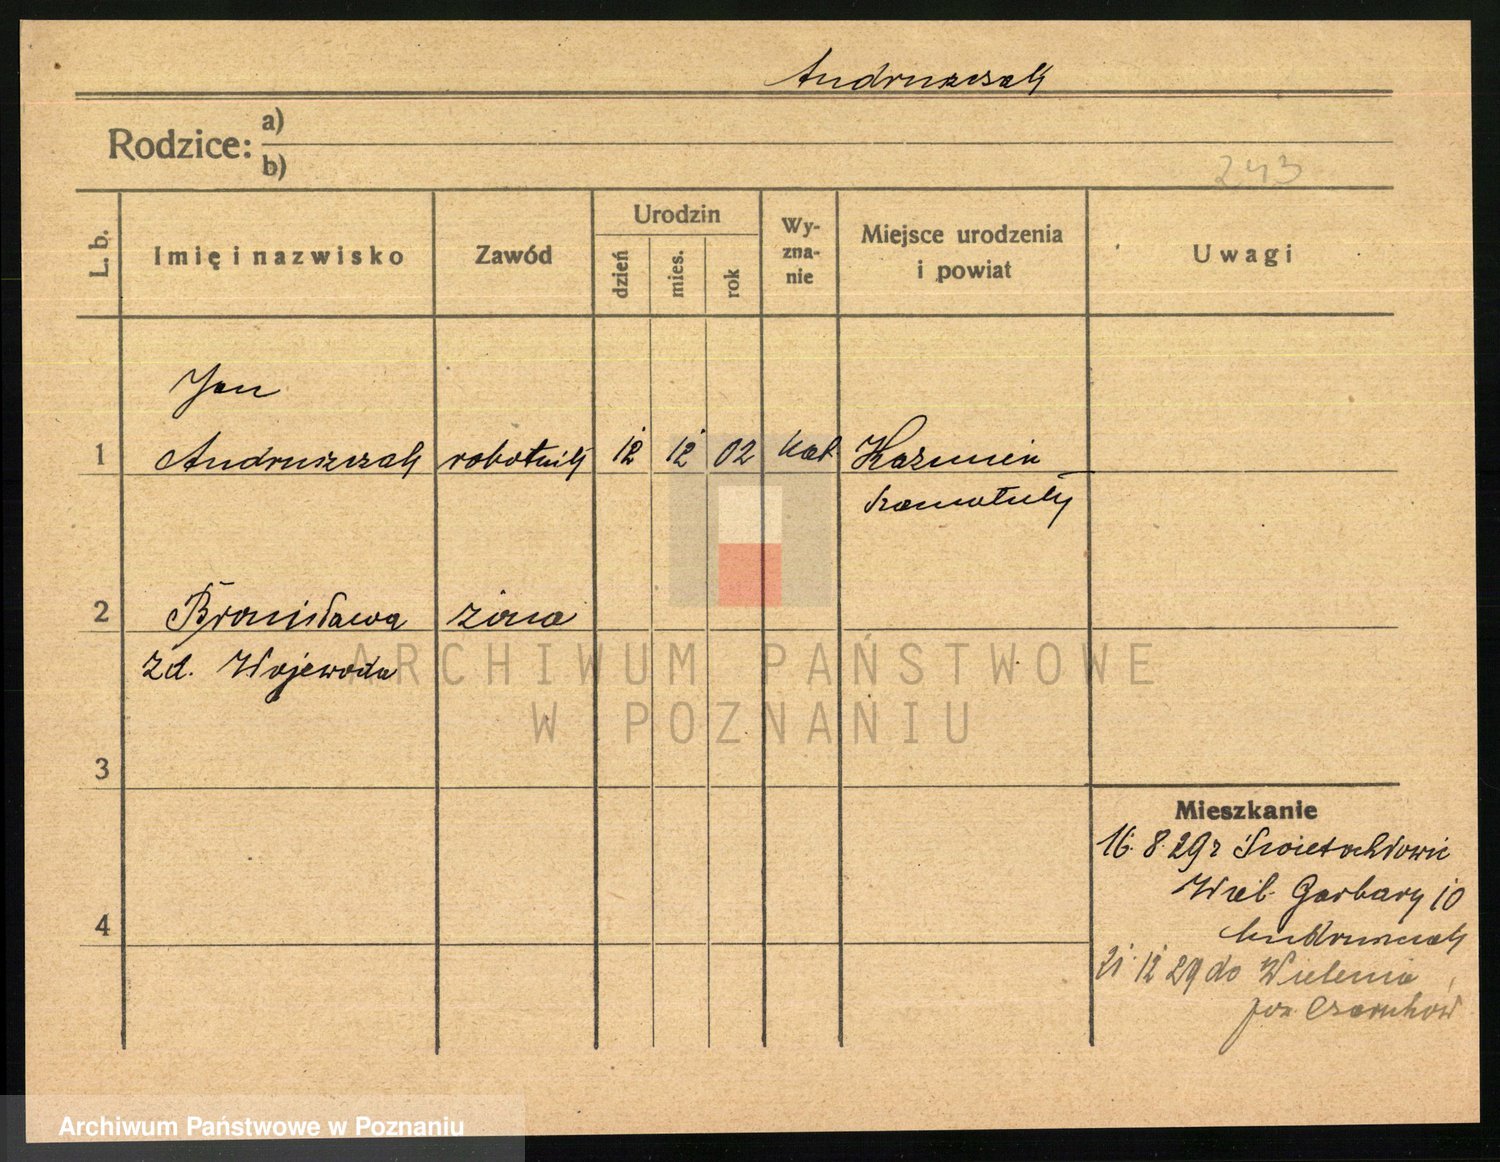 Andruszczak
Rodzice: a)
b)
243
L. b.
Imię i nazwisko
Zawód
Urodzin
dzień
mies.
rok
Wy-
zna-
nie
Miejsce urodzenia
i powiat
Uwagi
Jan
1 Andruszczak robotnik 12 12 02 kat Kazmierz
Szamotuły
2 Bronisława żona
zd. Wojewoda
ARCHIWUM PAŃSTWOWE
W POZNANIU
3
Mieszkanie
16. 8. 29 z Świetochłowic
Garbary 10
4
Andruszczak
21 12 29 do Wielenia
Czarnków
Archiwum Państwowe w Poznaniu